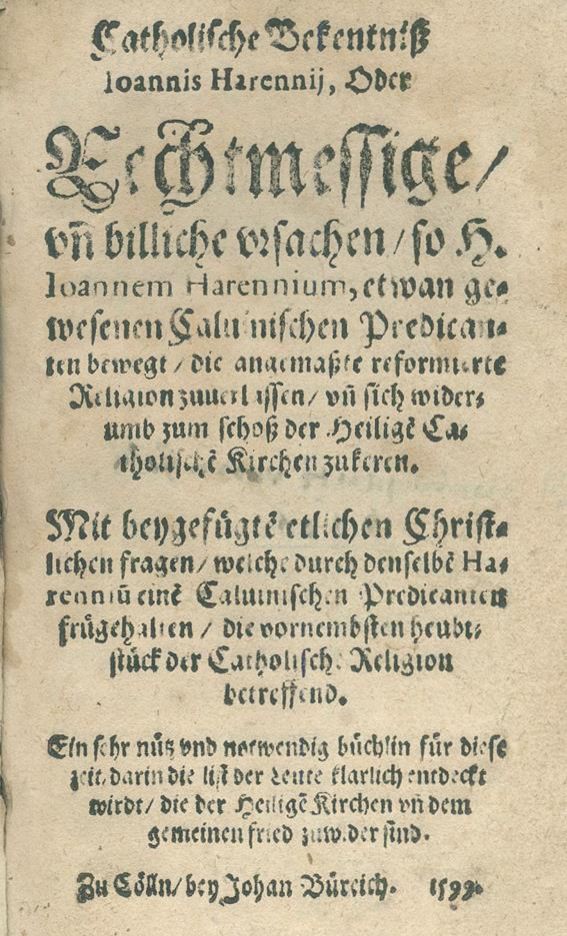 Catholische Bekentniß
Ioannis Harennij, Oder
Rechtmessige/
vñ billiche vrsachen/ so H.
Ioannem Harennium, etwan ge⸗
wesenen Caluinischen Predican⸗
ten bewegt/ die angemaßte reformierte
Religion zuuerlassen/ vñ sich wider⸗
umb zum schoß der Heiligẽ Ca⸗
tholischẽ Kirchen zukeren.
Mit beygefügtẽ etlichen Christ⸗
lichen fragen/ welche durch denselbẽ Ha⸗
renniũ einẽ Caluinischen Predicanten
frügehalten/ die vornembsten heubt⸗
stück der Catholischẽ Religion
betreffend.
Ein sehr nütz vnd notwendig büchlin für diese
zeit/ darin die list der Leute klarlich entdeckt
wirdt/ die der Heiligẽ Kirchen vñ dem
gemeinen fried zuwider sind.
Zu Cölln/ bey Johan Büreich. 1599.